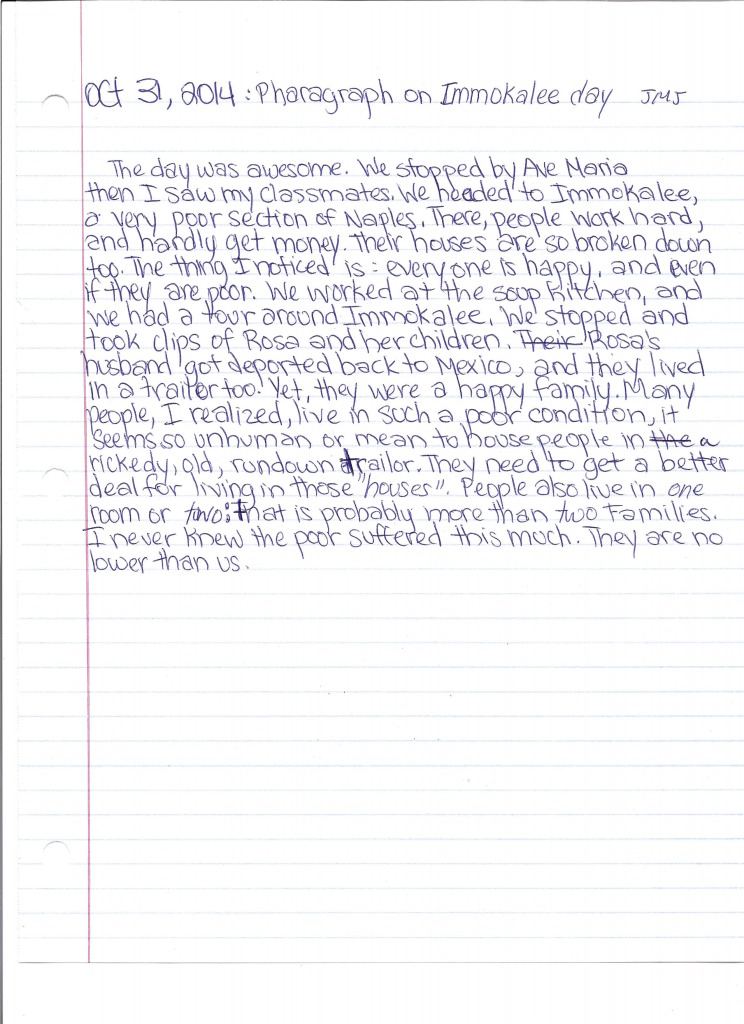 Oct 31, 2014 : Pharagraph on Immokalee day JMJ
The day was awesome. We stopped by Ave Maria
then I saw my classmates. We headed to Immokalee,
a very poor section of Naples. There, people work hard,
and hardly get money. Their houses are so broken down
too. The thing I noticed is : everyone is happy, and even
if they are poor. We worked at the soup kitchen, and
we had a tour around Immokalee. We stopped and
took clips of Rosa and her children. Their Rosa's
husband got deported back to Mexico, and they lived
in a trailer too. Yet, they were a happy family. Many
people, I realized, live in such a poor condition, it
seems so unhuman or mean to house people in the a
rickedy, old, rundown trailor. They need to get a better
deal for living in those "houses". People also live in one
room or two; that is probably more than two families.
I never knew the poor suffered this much. They are no
lower than us.